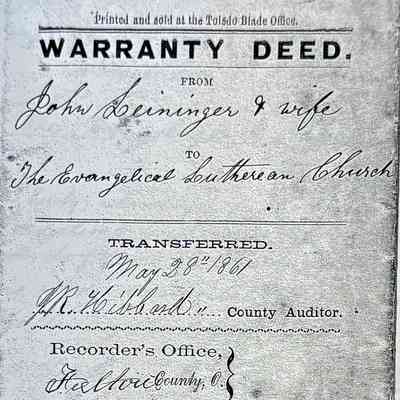 Printed and sold at the Toledo Blade Office.
WARRANTY DEED.
FROM
John Leininger & wife
TO
The Evangelical Lutherean Church
TRANSFERRED.
May 28" 1861
J.R. Hibbard " ... County Auditor.
Recorder's Office,
Fulton County, O.